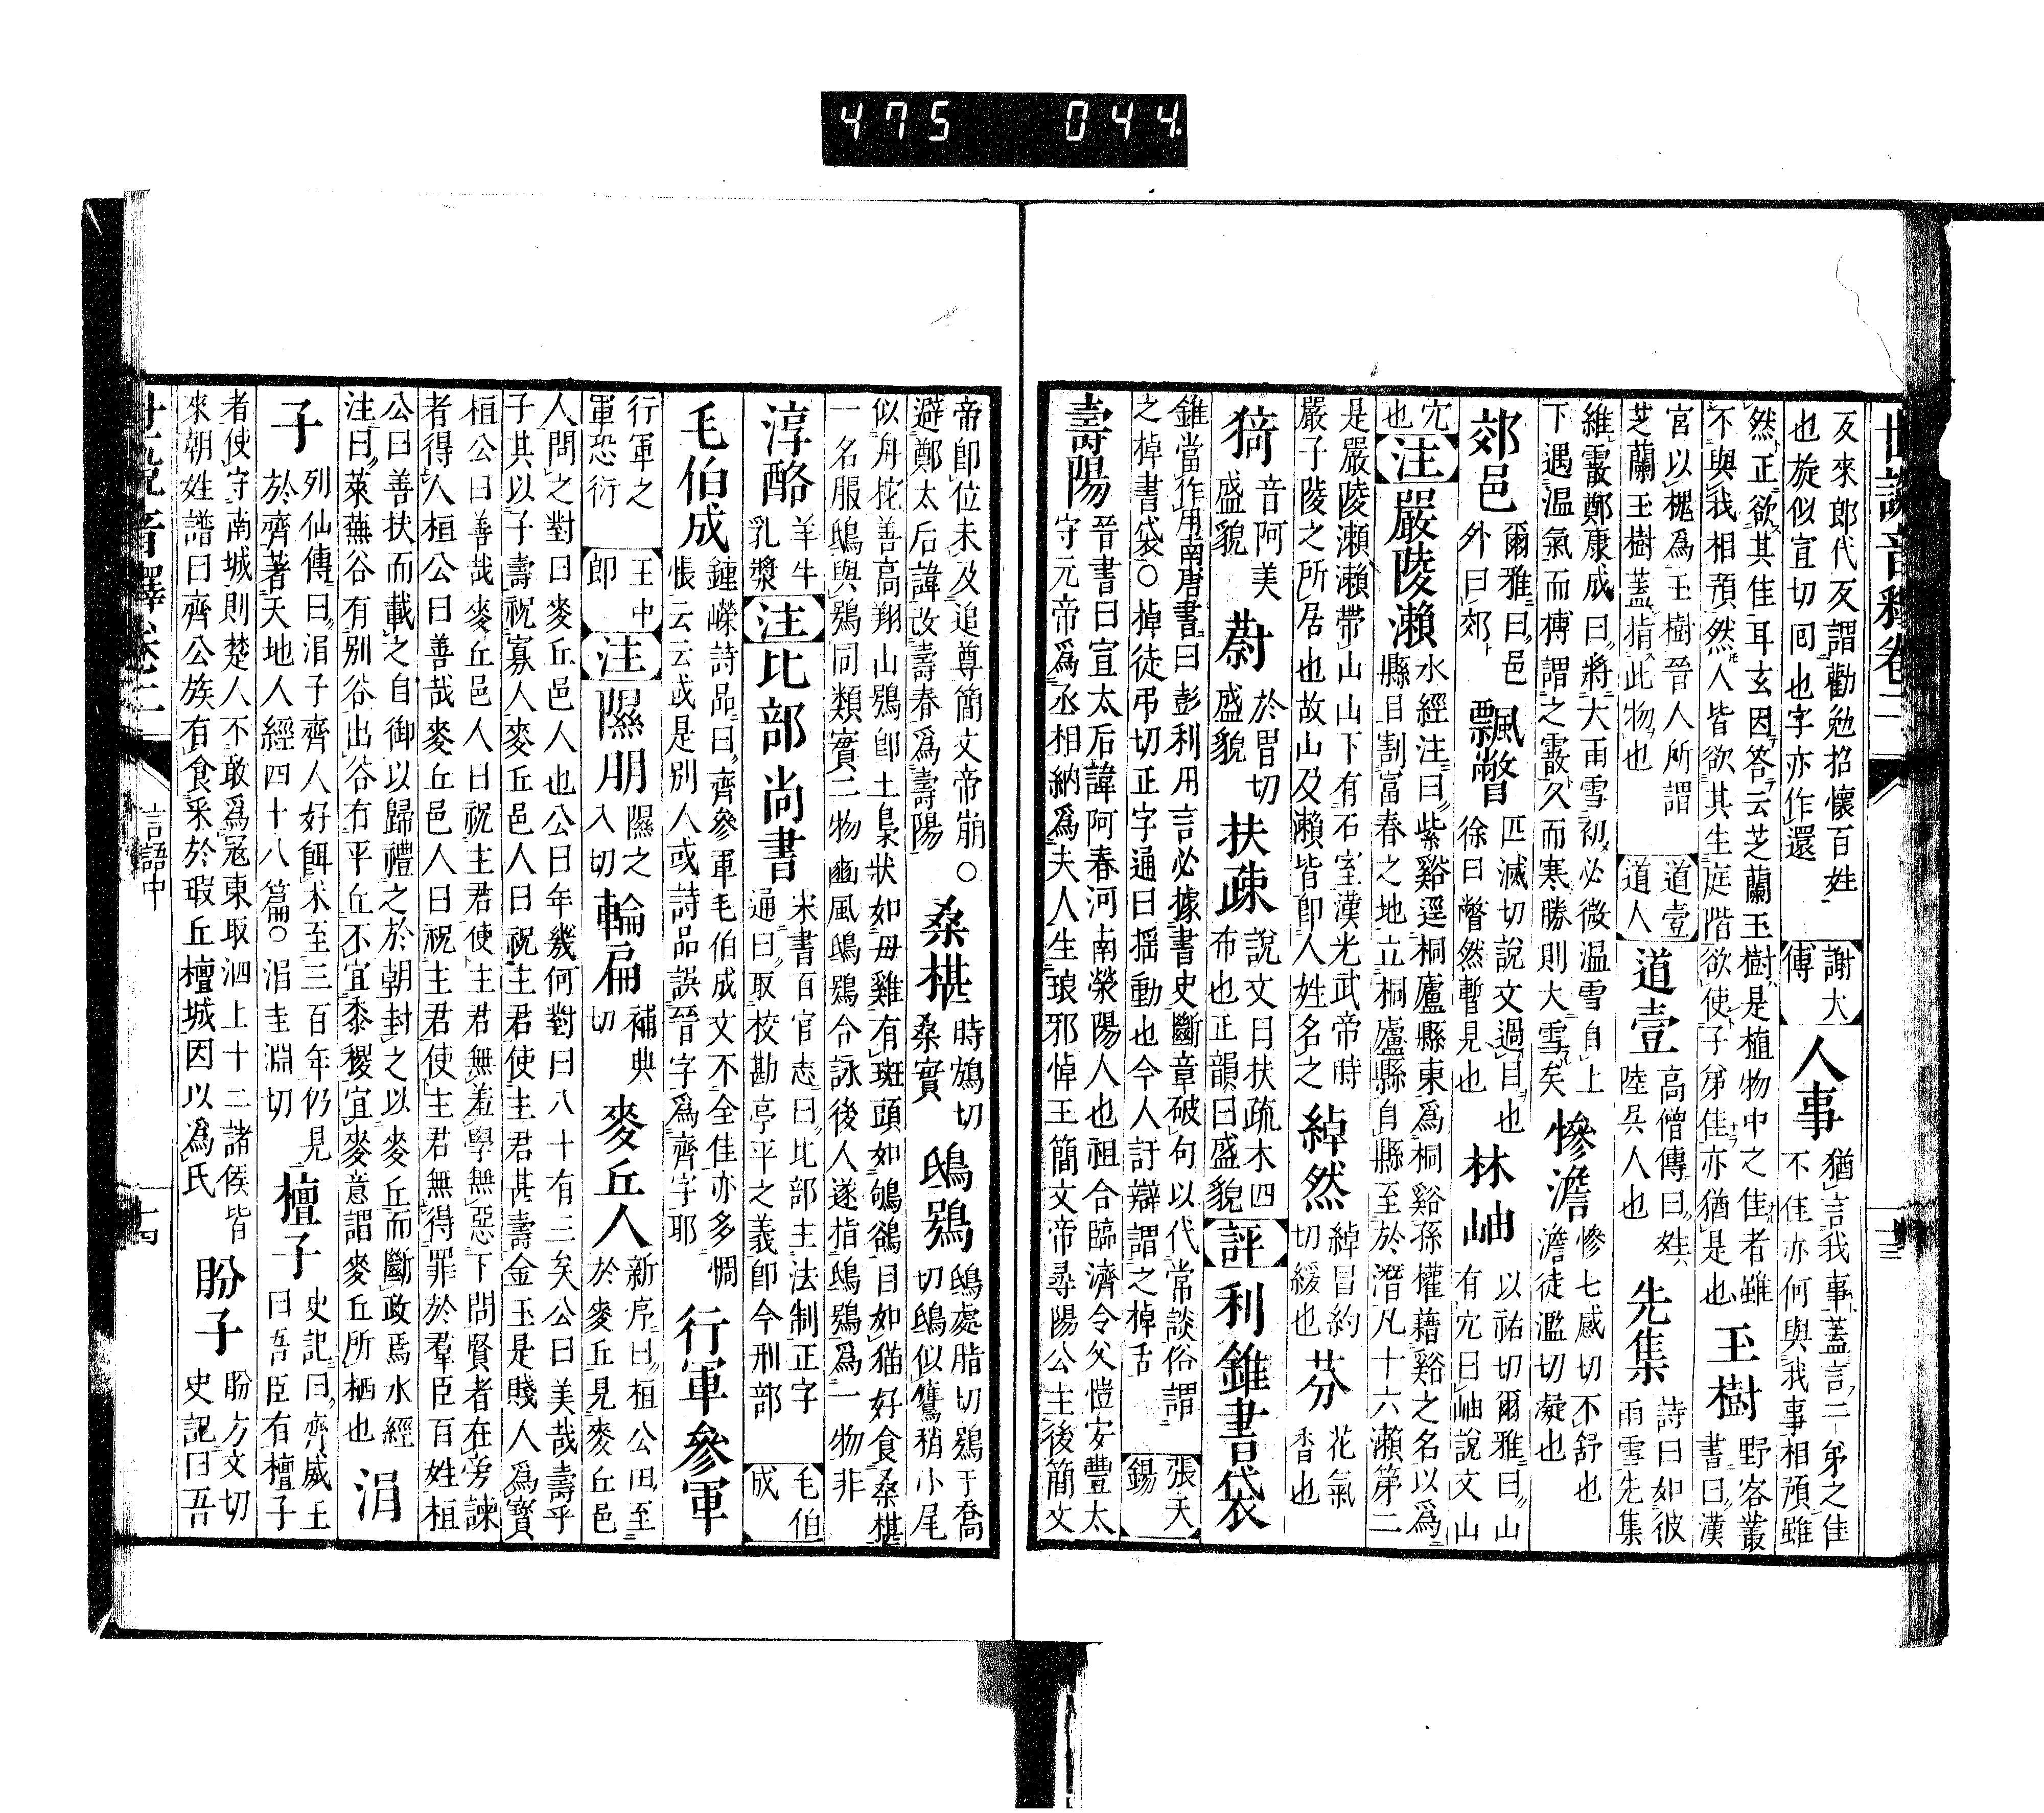 世說音釋卷二　十三
反來郎代反謂勸勉招懷百姓也旋似宣切同也字亦作還 謝太傅 人事 猶言我事蓋言二弟之佳不佳亦何與我事相預雖
然正欲其佳耳玄因答云芝蘭玉樹是植物中之佳者雖不與我相預然人皆欲其生庭階欲使子弟佳亦猶是也 玉樹 野客叢書曰漢
宮以槐為玉樹晉人所謂芝蘭玉樹蓋指此物也 道壹道人 道壹 高僧傳曰姓陸吳人也 先集 詩曰如彼雨雪先集
維霰鄭康成曰將大雨雪初必微溫雪自上下遇溫氣而摶謂之霰久而寒勝則大雪矣 慘澹 慘七感切不舒也澹徒濫切凝也
郊邑 爾雅曰邑外曰郊 飄瞥 匹滅切說文過目也徐曰瞥然暫見也 林岫 以祐切爾雅曰山有穴曰岫說文山
穴也 注 嚴陵瀨 水經注曰紫谿逕桐廬縣東為桐谿孫權藉谿之名以為縣目割富春之地立桐廬縣自縣至於潛凡十六瀨第二
是嚴陵瀨瀨帶山山下有石室漢光武帝時嚴子陵之所居也故山及瀨皆即人姓名之 綽然 綽昌約切緩也 芬 花氣香也
猗 音阿美盛貌 蔚 於胃切盛貌 扶疎 說文曰扶疏木四布也正韻曰盛貌 評 利錐書袋
錐當作用南唐書曰彭利用言必據書史斷章破句以代常談俗謂之掉書袋○掉徒弔切正字通曰搖動也今人訏辯謂之掉舌 張天錫
壽陽 晉書曰宣太后諱阿春河南滎陽人也祖合臨濟令父愷安豐太守元帝為丞相納為夫人生琅邪悼王簡文帝尋陽公主後簡文
帝即位未及追尊簡文帝崩○避鄭太后諱改壽春為壽陽 桑椹 時鴆切桑實 鴟鴞 鴟處脂切鴞于喬切鴟似鷹稍小尾
似舟柁善高翔山鴞即土梟狀如母雞有斑頭如鴝鵒目如猫好食桑椹一名服鴟與鴞同類實二物豳風鴟鴞合詠後人遂指鴟鴞為一物非
淳酪 羊牛乳漿 注 比部尚書 宋書百官志曰比部主法制正字通曰取校勘亭平之義即今刑部 毛伯成
毛伯成 鍾嶸詩品曰齊參軍毛伯成文不全佳亦多惆悵云云或是別人或詩品誤晉字為齊字耶 行軍參軍
行軍之軍恐衍 王中郎 注 隰朋 隰之入切 輪扁 補典切 麥丘人 新序曰桓公田至於麥丘見麥丘邑
人問之對曰麥丘邑人也公曰年幾何對曰八十有三矣公曰美哉壽乎子其以子壽祝寡人麥丘邑人曰祝主君使主君甚壽金玉是賤人為寶
桓公曰善哉麥丘邑人曰祝主君使主君無羞學無惡下問賢者在旁諫者得人桓公曰善哉麥丘邑人曰祝主君使主君無得罪於羣臣百姓桓
公曰善扶而載之自御以歸禮之於朝封之以麥丘而斷政焉水經注曰萊蕪谷有別谷出谷有平丘不宜黍稷宜麥意謂麥丘所栖也 涓
子 列仙傳曰涓子齊人好餌朮至三百年仍見於齊著天地人經四十八篇○涓圭淵切 檀子 史記曰齊威王曰吾臣有檀子
者使守南城則楚人不敢為寇東取泗上十二諸侯皆來朝姓譜曰齊公族有食采於瑕丘檀城因以為氏 盼子 盼方文切史記曰吾
世說音釋卷二　言語中　十四